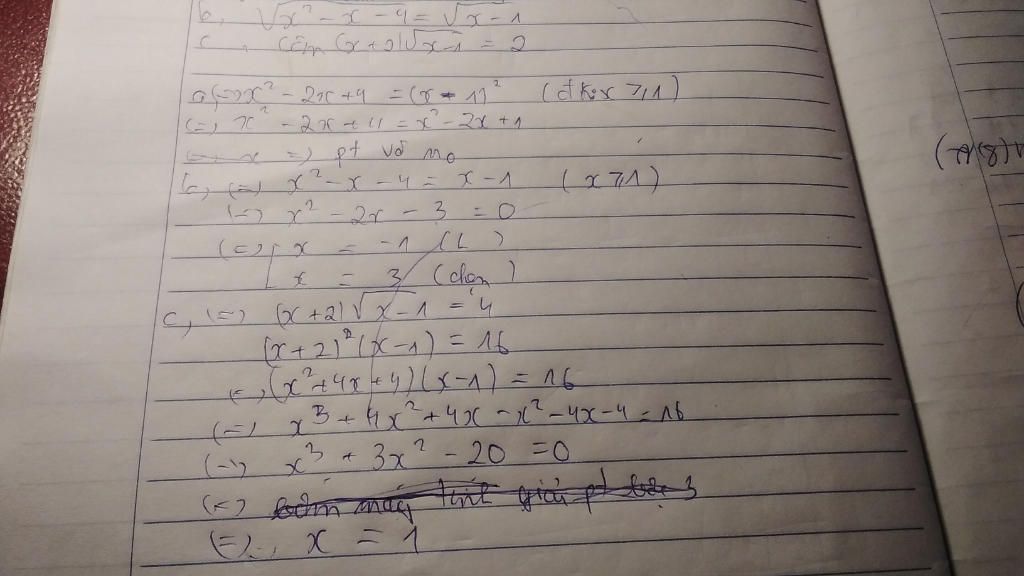 b, √x² - x - 4 = √x - 1
c, căn (x+2)√x-1 = 2
a, (=) x² - 2x + 4 = (x - 1)² (đk: x ⩾ 1)
(=) x² - 2x + 4 = x² - 2x + 1
=) pt vô n0
b, (=) x² - x - 4 = x - 1 (x ⩾ 1)
(=) x² - 2x - 3 = 0
(=) [ x = -1 (L)
x = 3 (chọn)
c, (=) (x+2)√x-1 = 4
(x+2)² (x-1) = 16
(=) (x² + 4x + 4)(x-1) = 16
(=) x³ + 4x² + 4x - x² - 4x - 4 = 16
(=) x³ + 3x² - 20 = 0
(=) bấm máy tính giải pt bậc 3
(=) x = 1